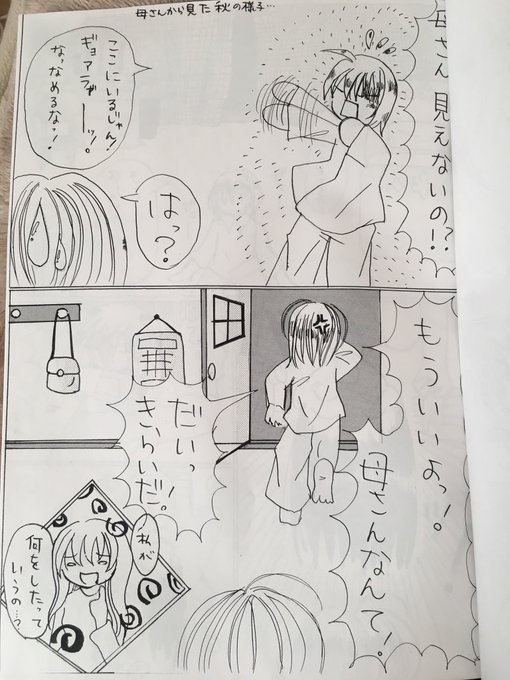 母さんから見た秋の様子…
母さん 見えないの!?
ここにいるじゃん!
ギョアラァーーッ!。
なっなめるなっ!
はっ?
もういいよっ!。
母さんなんて!
だいっ!
きらいだ。
私が
何をしたって
いうの…?